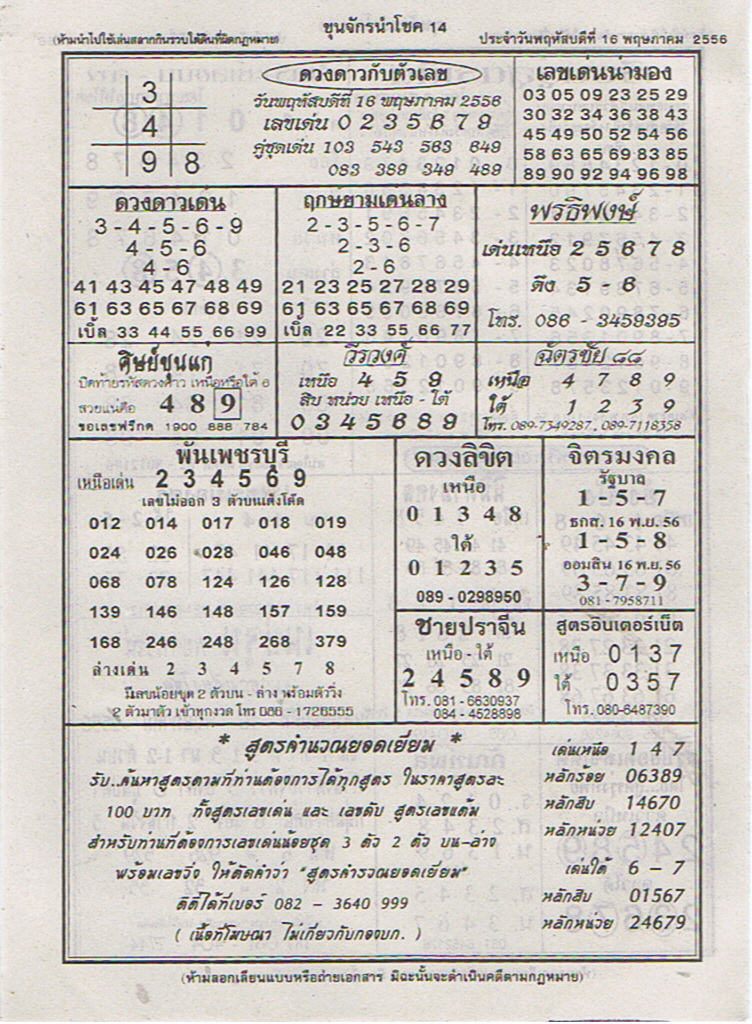 ขุนจักรนำโชค 14
(ห้ามนำไปใช้เล่นสลากกินรวบใต้ดินที่ผิดกฎหมาย)
ประจำวันพฤหัสบดีที่ 16 พฤษภาคม 2556
3
4
9 8
ดวงดาวกับตัวเลข
วันพฤหัสบดีที่ 16 พฤษภาคม 2556
เลขเด่น 0 2 3 5 6 7 9
คู่ชุดเด่น 103 543 563 649
063 389 349 489
เลขเด่นน่ามอง
03 05 09 23 25 29
30 32 34 36 38 43
45 49 50 52 54 56
58 63 65 69 83 85
89 90 92 94 96 98
ดวงดาวเด่น
3 - 4 - 5 - 6 - 9
4 - 5 - 6
4 - 5
41 43 45 47 48 49
61 63 65 67 68 69
เบิ้ล 33 44 55 66 99
ฤกษ์ยามเด่นล่าง
2 - 3 - 5 - 6 - 7
2 - 3 - 6
2 - 6
21 23 25 27 28 29
61 63 65 67 68 69
เบิ้ล 22 33 55 66 77
พรธิพงษ์
เด่นเหนือ 2 5 6 7 8
ดึง 5 - 6
โทร. 086 - 3459385
ศิษย์ขุนแก่
ปิดท้ายรหัสดวงดาว เหนือหรือใต้ 6
สวยแน่คือ 4 8 9
ขอเลขฟรีกด 1900 888 784
วิรวงค์
เหนือ 4 5 9
สิบ หน่วย เหนือ - ใต้
0 3 4 5 6 8 9
ฉัตรชัย ๘๘
เหนือ 4 7 8 9
ใต้ 1 2 3 9
โทร. 089-7349287 , 089-7118358
พันเพชรบุรี
เหนือเด่น 2 3 4 5 6 9
เลขไม่ออก 3 ตัวบนเต็งโต๊ด
012 014 017 018 019
024 026 028 046 048
068 078 124 126 128
139 146 148 157 159
168 246 248 268 379
ล่างเด่น 2 3 4 5 7 8
มีเลขน้อยชุด 2 ตัวบน - ล่าง พร้อมตัววิ่ง
2 ตัวมาตัว เข้าทุกงวด โทร 086 - 1726555
ดวงลิขิต
เหนือ
0 1 3 4 8
ใต้
0 1 2 3 5
089 - 0298950
จิตรมงคล
รัฐบาล
1 - 5 - 7
ธกส. 16 พ.ย. 56
1 - 5 - 8
ออมสิน 16 พ.ย. 56
3 - 7 - 9
081 - 7958711
ชายปราจีน
เหนือ - ใต้
2 4 5 8 9
โทร. 081 - 6630937
084 - 4528898
สูตรอินเตอร์เน็ต
เหนือ 0 1 3 7
ใต้ 0 3 5 7
โทร. 080-6487390
* สูตรคำนวณยอดเยี่ยม *
รับ..ค้นหาสูตรตามที่ท่านต้องการได้ทุกสูตร ในราคาสูตรละ
100 บาท ทั้งสูตรเลขเด่น และ เลขดับ สูตรเลขแต้ม
สำหรับท่านที่ต้องการเลขเด่นน้อยชุด 3 ตัว 2 ตัว บน-ล่าง
พร้อมเลขวิ่ง ให้ตัดคำว่า "สูตรคำรวณยอดเยี่ยม"
ติดได้ที่เบอร์ 082 - 3640 999
( เนื้อที่โฆษณา ไม่เกี่ยวกับกองบก. )
เด่นเหนือ 1 4 7
หลักร้อย 06389
หลักสิบ 14670
หลักหน่วย 12407
เด่นใต้ 6 - 7
หลักสิบ 01567
หลักหน่วย 24679
(ห้ามลอกเลียนแบบหรือถ่ายเอกสาร มิฉะนั้นจะดำเนินคดีตามกฎหมาย)